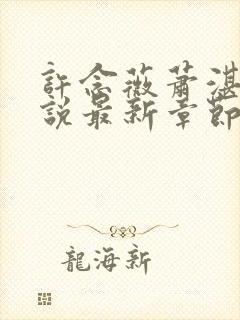 許念薇蕭湛
說最新章節
龍海新